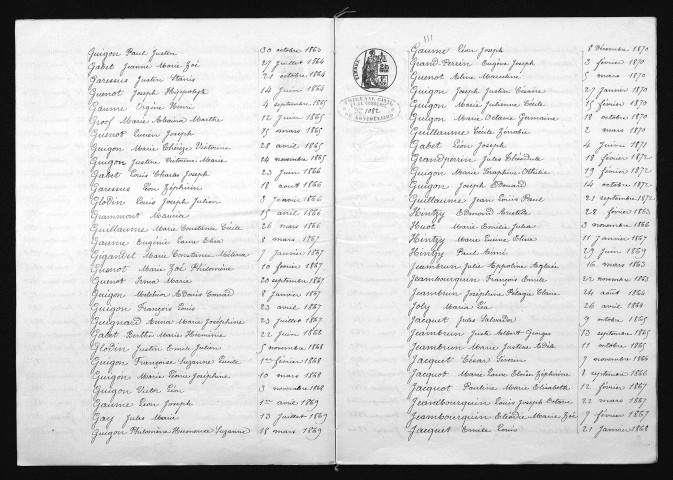 Guigon Paul Justin 30 octobre 1863
Gabet Jeanne Marie Zoé 27 juillet 1864
Garessus Justin Stanis 28 octobre 1864
Guenot Joseph Hippolyte 14 juin 1864
Gaume Virgine Henri 4 septembre 1865
Groef Marie Maria Marthe 12 juin 1865
Guenot Lucien Joseph 15 mars 1865
Guigon Marie Thérèze Victorine 28 avril 1865
Guigon Justine Antoine Marie 24 novembre 1865
Gabet Louis Charles Joseph 23 juin 1866
Garessus Léon Zéphirin 18 août 1866
Glodin Louis Joseph Julien 3 janvier 1866
Grammont Maurice 15 avril 1866
Guillaume Marie Constance Cécile 26 mars 1866
Gaume Eugénie Laure Elisa 8 mars 1867
Gigandet Marie Constance Mélina 7 janvier 1867
Guenot Marie Zoé Philomène 10 février 1867
Guenot Irma Marie 20 septembre 1867
Guigon Melchior Conrad 8 janvier 1867
Guigon François Louis 23 avril 1867
Guignard Anna Marie Joséphine 23 juillet 1867
Gabet Berthe Marie Herminie 22 juin 1868
Glodin Justin Emile Julien 5 novembre 1868
Guigon Françoise Suzanne Lucile 1er février 1868
Guigon Marie Léonie Joséphine 10 mars 1868
Guigon Victor Léon 3 novembre 1868
Gaume Léon Joseph 1er avril 1869
Gay Jules Marie 13 juillet 1869
Guigon Philomène Hermance Suzanne 18 mars 1869
111
TIMBRE
TRIBUNAL CIVIL
1082
DE MONTBÉLIARD
Gaume Léon Joseph 8 Décembre 1870
Grand-Perrin Eugène Joseph 3 février 1870
Guenot Aline Marceline 5 mars 1870
Guigon Joseph Justin Césaire 27 janvier 1870
Guigon Marie Julienne Cécile 15 février 1870
Guigon Marie Octavie Germaine 18 octobre 1870
Guillaume Cécile Zénobie 2 mars 1870
Gabet Léon Joseph 4 juin 1871
Grandperrin Jules Théodule 18 février 1872
Guigon Marie Séraphine Othilie 19 février 1872
Guigon Joseph Edouard 14 octobre 1872
Guillaume Jean Louis Paul 21 septembre 1872
Hintzy Edouard 28 février 1863
Huot Marie Emélie Julia 3 novembre 1866
Hintzy Marie Elisa 11 janvier 1867
Hintzy Paul Aimé 29 juin 1869
Jeambrun Julie Appoline 16 mars 1863
Jeambourquin François Emile 22 novembre 1863
Jeambrun Joséphine Pélagie Elaine 24 août 1864
Joly Maria Léa 26 avril 1864
Jacquet Jules Salvador 9 octobre 1865
Jeambrun Juste Albert Georges 13 septembre 1865
Jeambrun Marie Justine Adèle 11 octobre 1865
Jacquet César 9 novembre 1866
Jacquot Marie Laure Elvina Zéphirine 8 septembre 1866
Jacquot Pauline Marie Elisabeth 12 février 1867
Jeambourquin Louis Joseph Octave 22 mars 1867
Jeambourquin Elodie Marie Zoé 9 février 1867
Jacquet Emile Louis 21 janvier 1868